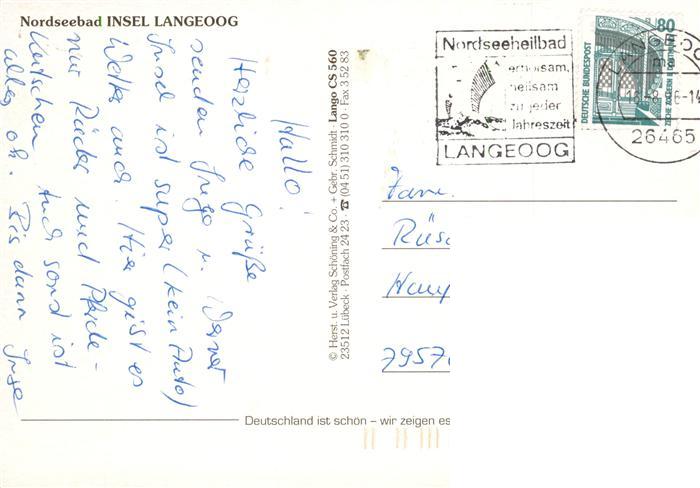 Nordseebad INSEL LANGEOOG
Hallo!
Herzliche Grüße
senden Inge u. Werner
Insel ist super (kein Auto)
Wetter auch. Hier gibt es
nur Räder und Pferde-
kutschen. Auch sonst ist
alles ok. Bis dann Inge
© Herst. u. Verlag Schöning & Co. + Gebr. Schmidt · Lango CS 560
23512 Lübeck · Postfach 24 23 · ☎ (04 51) 310 310 0 · Fax 3 52 83
Nordseeheilbad
erholsam,
heilsam
zu jeder
Jahreszeit
LANGEOOG
80
DEUTSCHE BUNDESPOST
26465
Fam.
7957
Deutschland ist schön – wir zeigen es